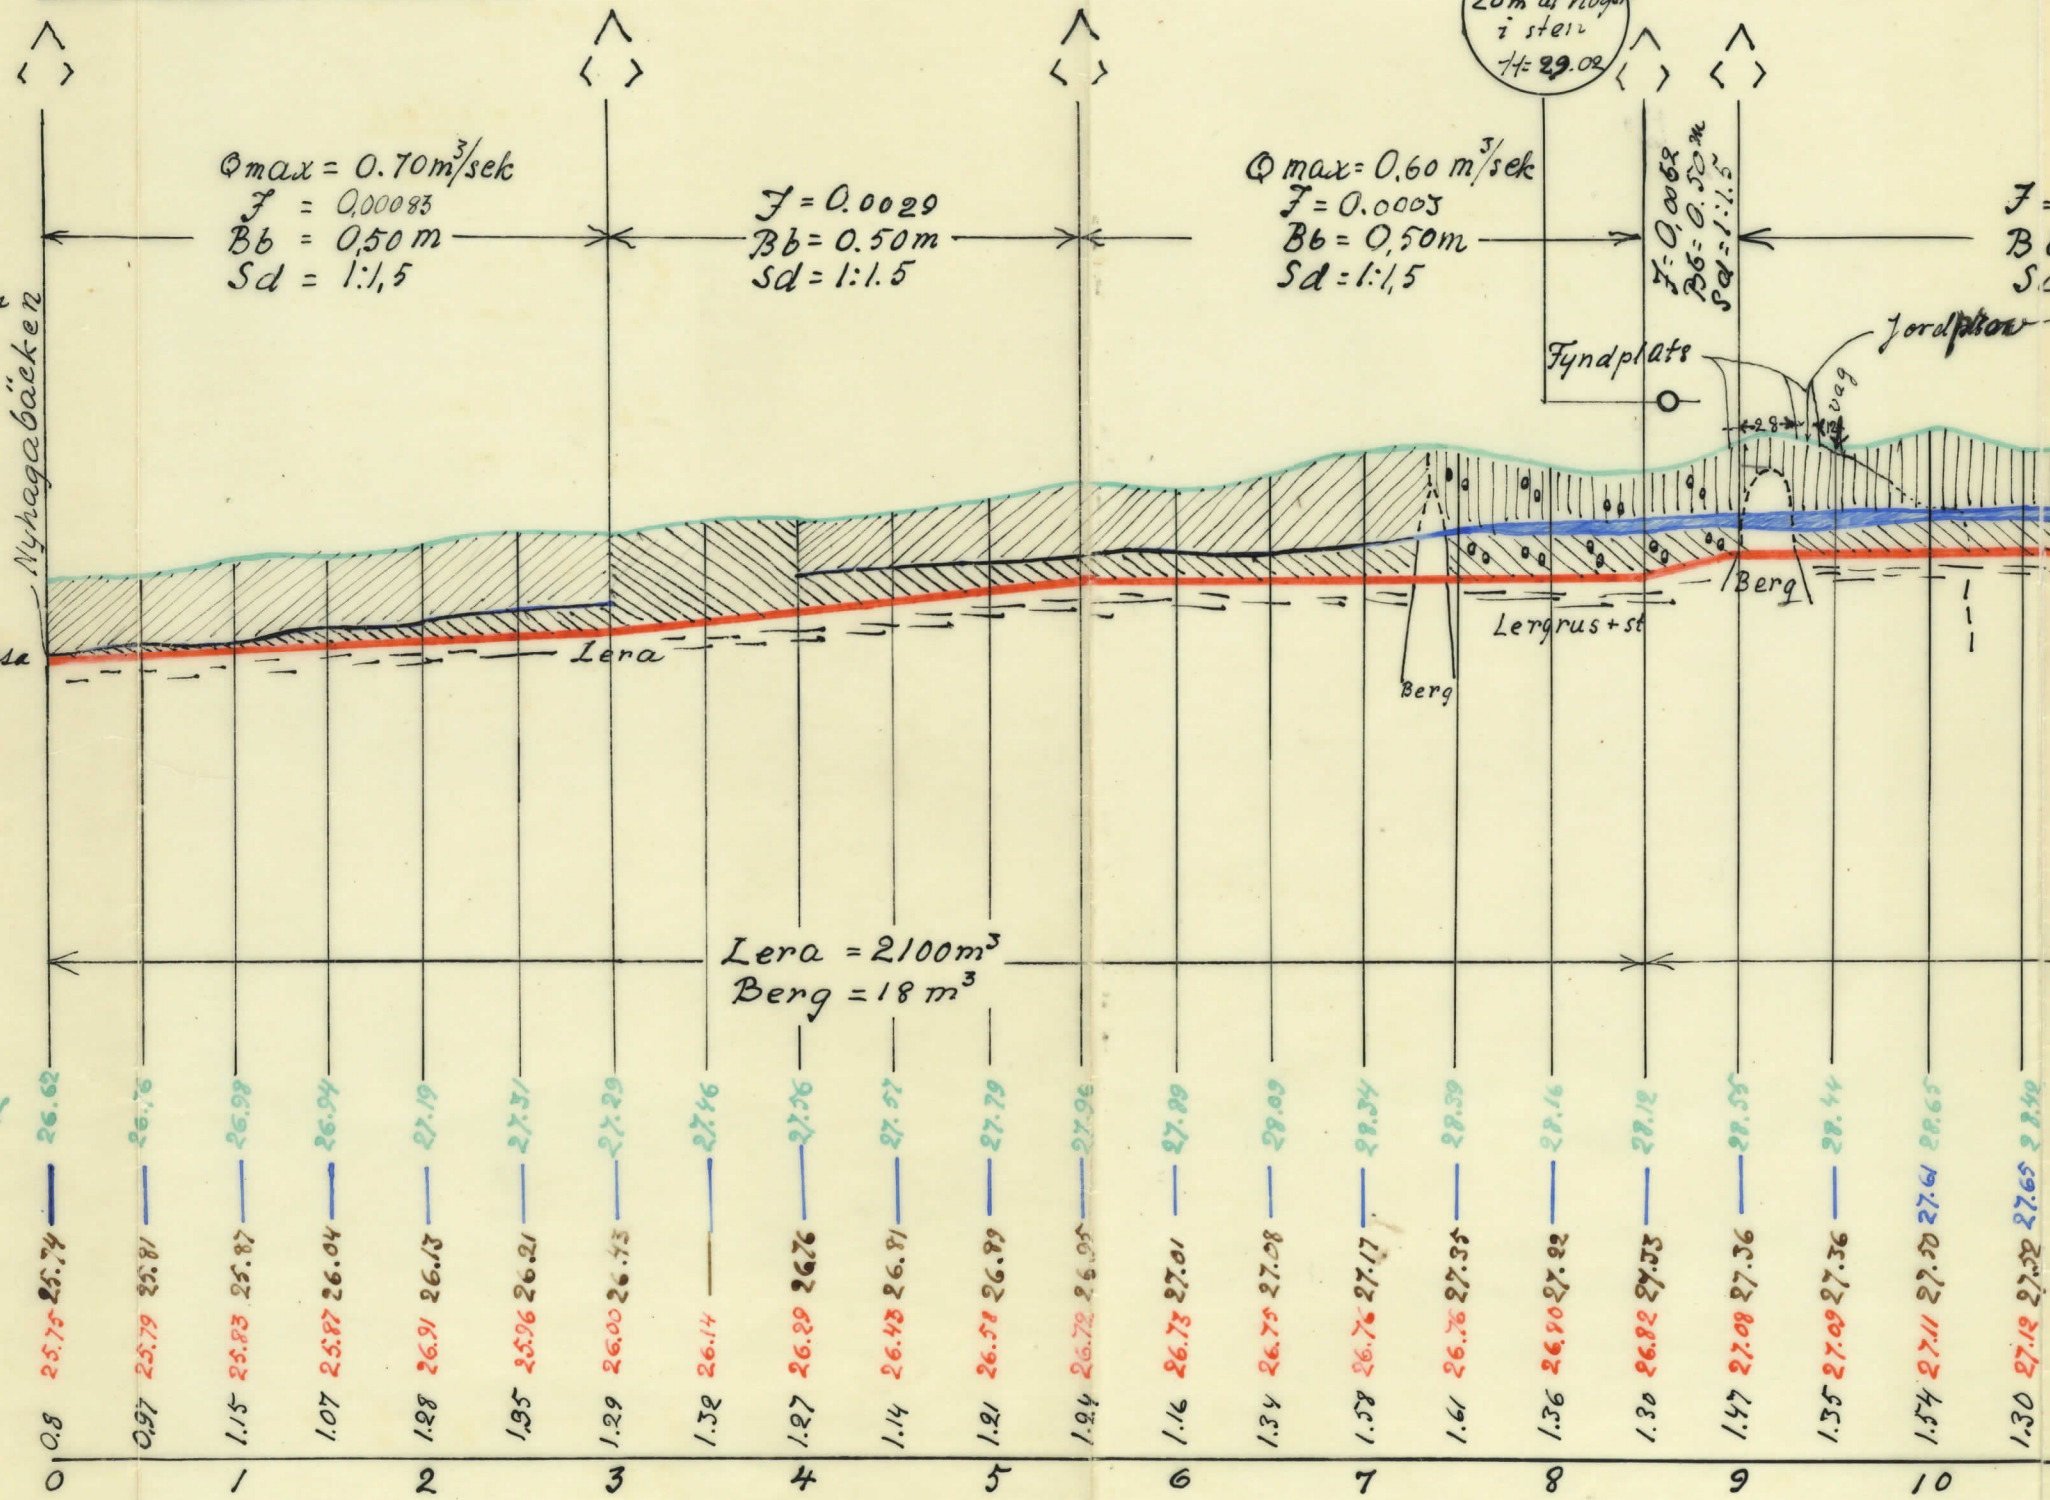 i sten
H=29.02
Qmax = 0.70 m³/sek
J = 0,00083
Bb = 0,50 m
Sd = 1:1,5
J = 0.0029
Bb = 0.50m
Sd = 1:1.5
Q max = 0,60 m³/sek
J = 0.0003
Bb = 0,50m
Sd = 1:1,5
J = 0,0062
Bb = 0.50m
Sd = 1:1.5
J =
B
S
Nyhagabäcken
Fyndplats
Jordprov
väg
28
12
sa
Lera
Berg
Lergrus + st
Berg
Lera = 2100 m³
Berg = 18 m³
26.62 26.76 26.98 26.94 27.19 27.31 27.29 27.46 27.56 27.57 27.79 27.96 27.89 28.09 28.34 28.39 28.16 28.12 28.55 28.44 28.65 28.48
27.61 27.65
25.74 25.81 25.87 26.04 26.13 26.21 26.43 26.76 26.81 26.89 26.95 27.01 27.08 27.17 27.35 27.22 27.33 27.36 27.36 27.50 27.52
25.75 25.79 25.83 25.87 26.91 25.96 26.00 26.14 26.29 26.43 26.58 26.72 26.73 26.75 26.76 26.76 26.80 26.82 27.08 27.09 27.11 27.12
0.8 0.97 1.15 1.07 1.28 1.35 1.29 1.32 1.27 1.14 1.21 1.24 1.16 1.34 1.58 1.61 1.36 1.30 1.47 1.35 1.54 1.30
0 1 2 3 4 5 6 7 8 9 10